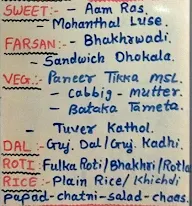 SWEET:- - Aam Ras.
Mohanthal Luse.
FARSAN:- - Bhakhrwadi.
- Sandwich Dhokala.
VEG.:- - Paneer Tikka MSL.
- Cabbig - Mutter.
- Bataka Tameta.
- Tuver Kathol.
DAL :- Guj. Dal/Guj. Kadhi.
ROTI :- Fulka Roti/Bhakhri/Rotla
RICE :- Plain Rice/Khichdi
papad-chatni-salad-chaas.